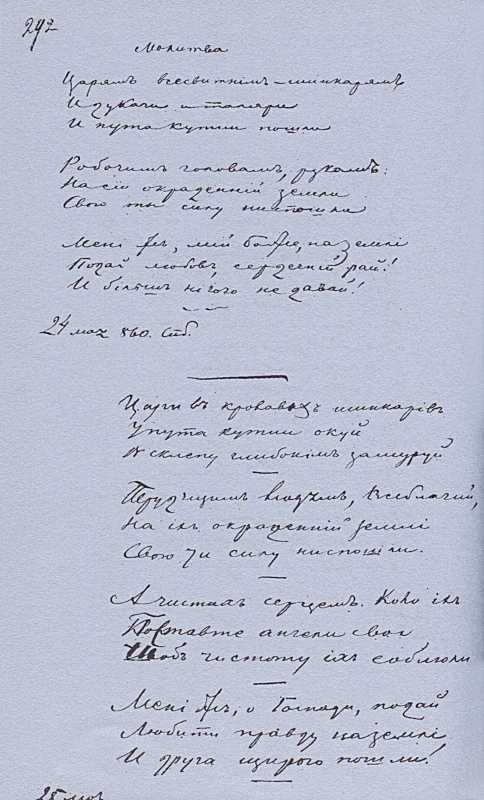 292
Молитва
Царямъ всесвитнімъ шинкарямъ
И дукачи и таляри
И пута кутии пошли
Робочимъ головамъ, рукамъ:
На сій окраденній земли
Свою ти силу ниспошли
Мені жъ, мій боже, на землі
Подай любовъ, сердечній рай!
И більшъ нічого не давай!
24 мая 860. Спб.
Царівъ кровавихъ шинкарівъ
У пута кутии окуй
В склепу глибокімъ замуруй
Трудящимъ людямъ, Всеблагий,
На іхъ окраденній землі
Свою ти силу ниспошли.
А чистихъ серцемъ. Коло іхъ
Поставте ангели свої
Щобъ чистоту іхъ соблюли
Мені жъ, о Господи, подай
Любити правду на землі
И друга щирого пошли!
25 мая